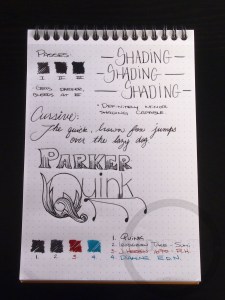 PASSES:
— SHADING —
— SHADING —
— SHADING —
I II III
GETS DARKER,
BLEEDS AT III
"DEFINITELY
SHADING CAPABLE"
Cursive:
The quick, brown fox jumps
over the lazy dog.
PARKER
Quink
1 2 3 4
1. QUINK
2.
3.
4. DIAMINE